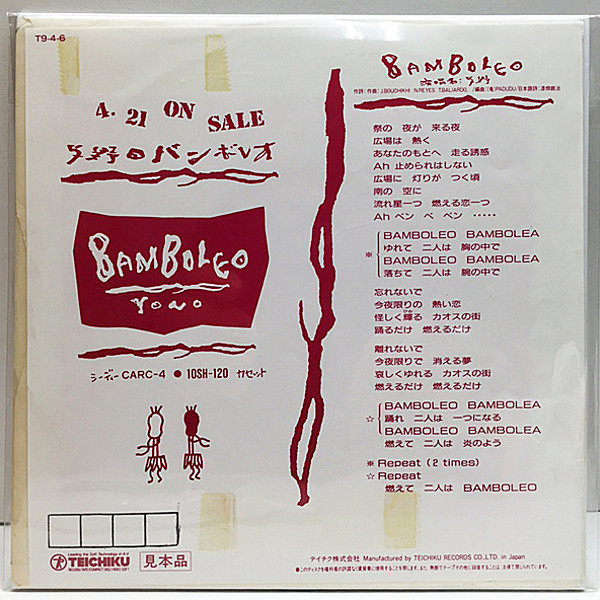 T9-4-6
4. 21 ON SALE
BAMBOLEO
YONO
シーディー CARC-4 ● 10SH-120 カセット
Leading the Soft Technology in A.V
TEICHIKU
RECORD/TAPE/COMPACT DISC/VIDEO SOFT
見本品
BAMBOLEO
作詩:作曲:J.BOUCHIKHI N.REYES T.BALIARDO,
祭の 夜が 来る夜
広場は 熱く
あなたのもとへ 走る誘惑
Ah 止められはしない
広場に 灯りが つく頃
南の 空に
流れ星一つ 燃える恋一つ
Ah ベン ベ ベン ‥‥‥
BAMBOLEO BAMBOLEA
※ ゆれて 二人は 胸の中で
BAMBOLEO BAMBOLEA
落ちて 二人は 腕の中で
忘れないで
今夜限りの 熱い恋
怪しく輝る カオスの街
踊るだけ 燃えるだけ
離れないで
今夜限りで 消える夢
哀しくゆれる カオスの街
燃えるだけ 燃えるだけ
BAMBOLEO BAMBOLEA
☆ 踊れ 二人は 一つになる
BAMBOLEO BAMBOLEA
燃えて 二人は 炎のよう
※ Repeat (2 times)
☆ Repeat
燃えて 二人は BAMBOLEO
テイチク株式会社 Manufactured by TEICHIKU RECORDS CO.,LTD. in Japan